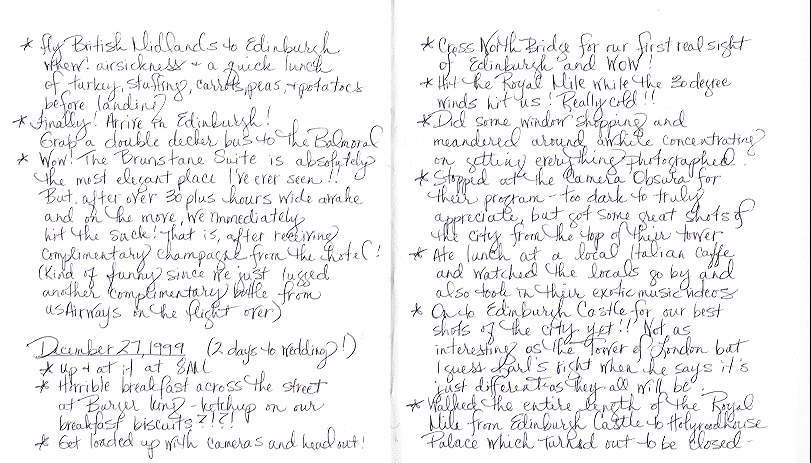 * fly British Midlands to Edinburgh
whew! airsickness + a quick lunch
of turkey, stuffing, carrots, peas, + potatoes
before landing
* Finally! Arrive in Edinburgh!
Grab a double decker bus to the Balmoral
* Wow! The Brunstane Suite is absolutely
the most elegant place I've ever seen!!
But, after over 30 plus hours wide awake
and on the move, we immediately
hit the sack! That is, after receiving
complimentary champagne from the hotel!
(Kind of funny since we just lugged
another complimentary bottle from
USAirways on the flight over)
December 27, 1999 (2 days to wedding!)
* Up + at it at 8AM
* Horrible breakfast across the street
at Burger King - ketchup on our
breakfast biscuits?!?!
* Get loaded up with cameras and head out!
* Cross North Bridge for our first real sight
of Edinburgh and WOW!
* Hit the Royal Mile while the 30 degree
winds hit us! Really cold!!
* Did some window shopping and
meandered around awhile concentrating
on getting everything photographed.
* Stopped at the Camera Obsura for
their program - too dark to truly
appreciate, but got some great shots of
the city from the top of their tower
* Ate lunch at a local Italian caffe
and watched the locals go by and
also took in their exotic music videos
* On to Edinburgh Castle for our best
shots of the city yet!! Not as
interesting as the Tower of London but
I guess Karl's right when he says it's
just different - as they all will be.
* Walked the entire length of the Royal
Mile from Edinburgh Castle to Holyroodhouse
Palace which turned out to be closed -